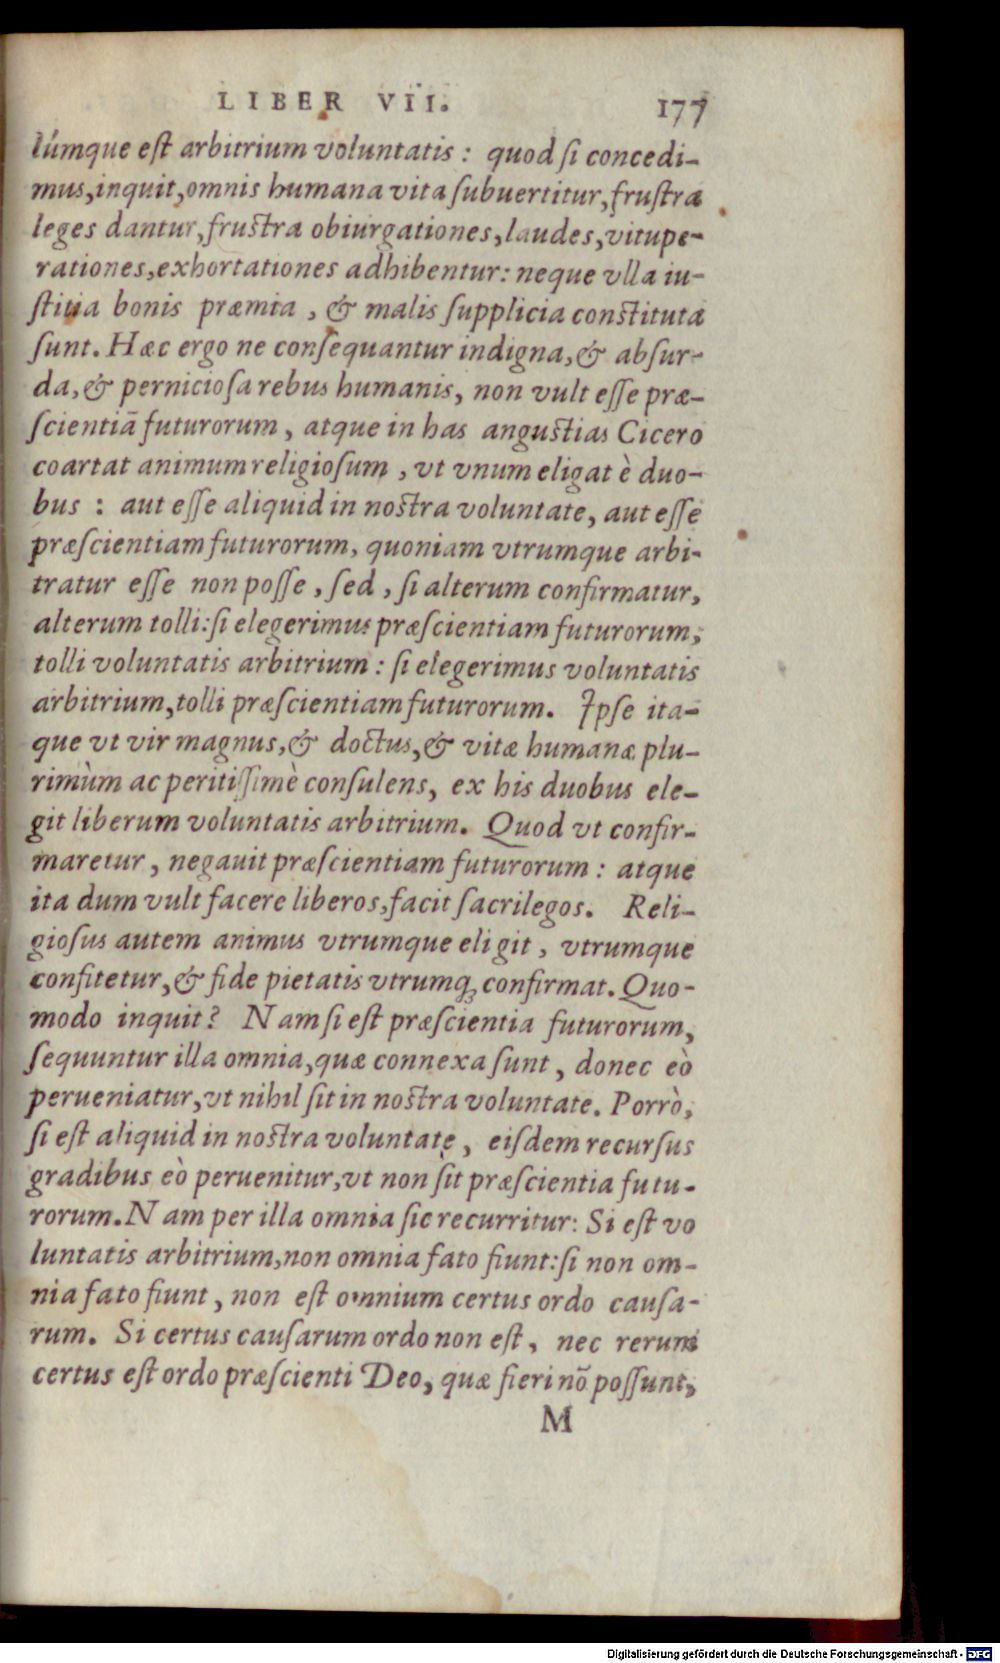 LIBER VII. 177
lúmque eſt arbitrium voluntatis: quod ſi concedi-
mus, inquit, omnis humana vita ſubuertitur, fruſtra
leges dantur, fruſtra obiurgationes, laudes, vitupe-
rationes, exhortationes adhibentur: neque vlla iu-
ſtitia bonis præmia, & malis ſupplicia conſtituta
ſunt. Hæc ergo ne conſequantur indigna, & abſur-
da, & pernicioſa rebus humanis, non vult eſſe præ-
ſcientiã futurorum, atque in has anguſtias Cicero
coartat animum religioſum, vt vnum eligat è duo-
bus: aut eſſe aliquid in noſtra voluntate, aut eſſe
præſcientiam futurorum, quoniam vtrumque arbi-
tratur eſſe non poſſe, ſed, ſi alterum confirmatur,
alterum tolli: ſi elegerimus præſcientiam futurorum,
tolli voluntatis arbitrium: ſi elegerimus voluntatis
arbitrium, tolli præſcientiam futurorum. Ipſe ita-
que vt vir magnus, & doctus, & vitæ humanæ plu-
rimùm ac peritiſſimè conſulens, ex his duobus ele-
git liberum voluntatis arbitrium. Quod vt confir-
maretur, negauit præſcientiam futurorum: atque
ita dum vult facere liberos, facit ſacrilegos. Reli-
gioſus autem animus vtrumque eligit, vtrumque
confitetur, & fide pietatis vtrumq; confirmat. Quo-
modo inquit? Nam ſi eſt præſcientia futurorum,
ſequuntur illa omnia, quæ connexa ſunt, donec eò
perueniatur, vt nihil ſit in noſtra voluntate. Porrò,
ſi eſt aliquid in noſtra voluntate, eiſdem recurſus
gradibus eò peruenitur, vt non ſit præſcientia futu-
rorum. Nam per illa omnia ſic recurritur: Si eſt vo
luntatis arbitrium, non omnia fato fiunt: ſi non om-
nia fato fiunt, non eſt omnium certus ordo cauſa-
rum. Si certus cauſarum ordo non eſt, nec rerum
certus eſt ordo præſcienti Deo, quæ fieri nõ poſſunt,
M
Digitalisierung gefördert durch die Deutsche Forschungsgemeinschaft - DFG